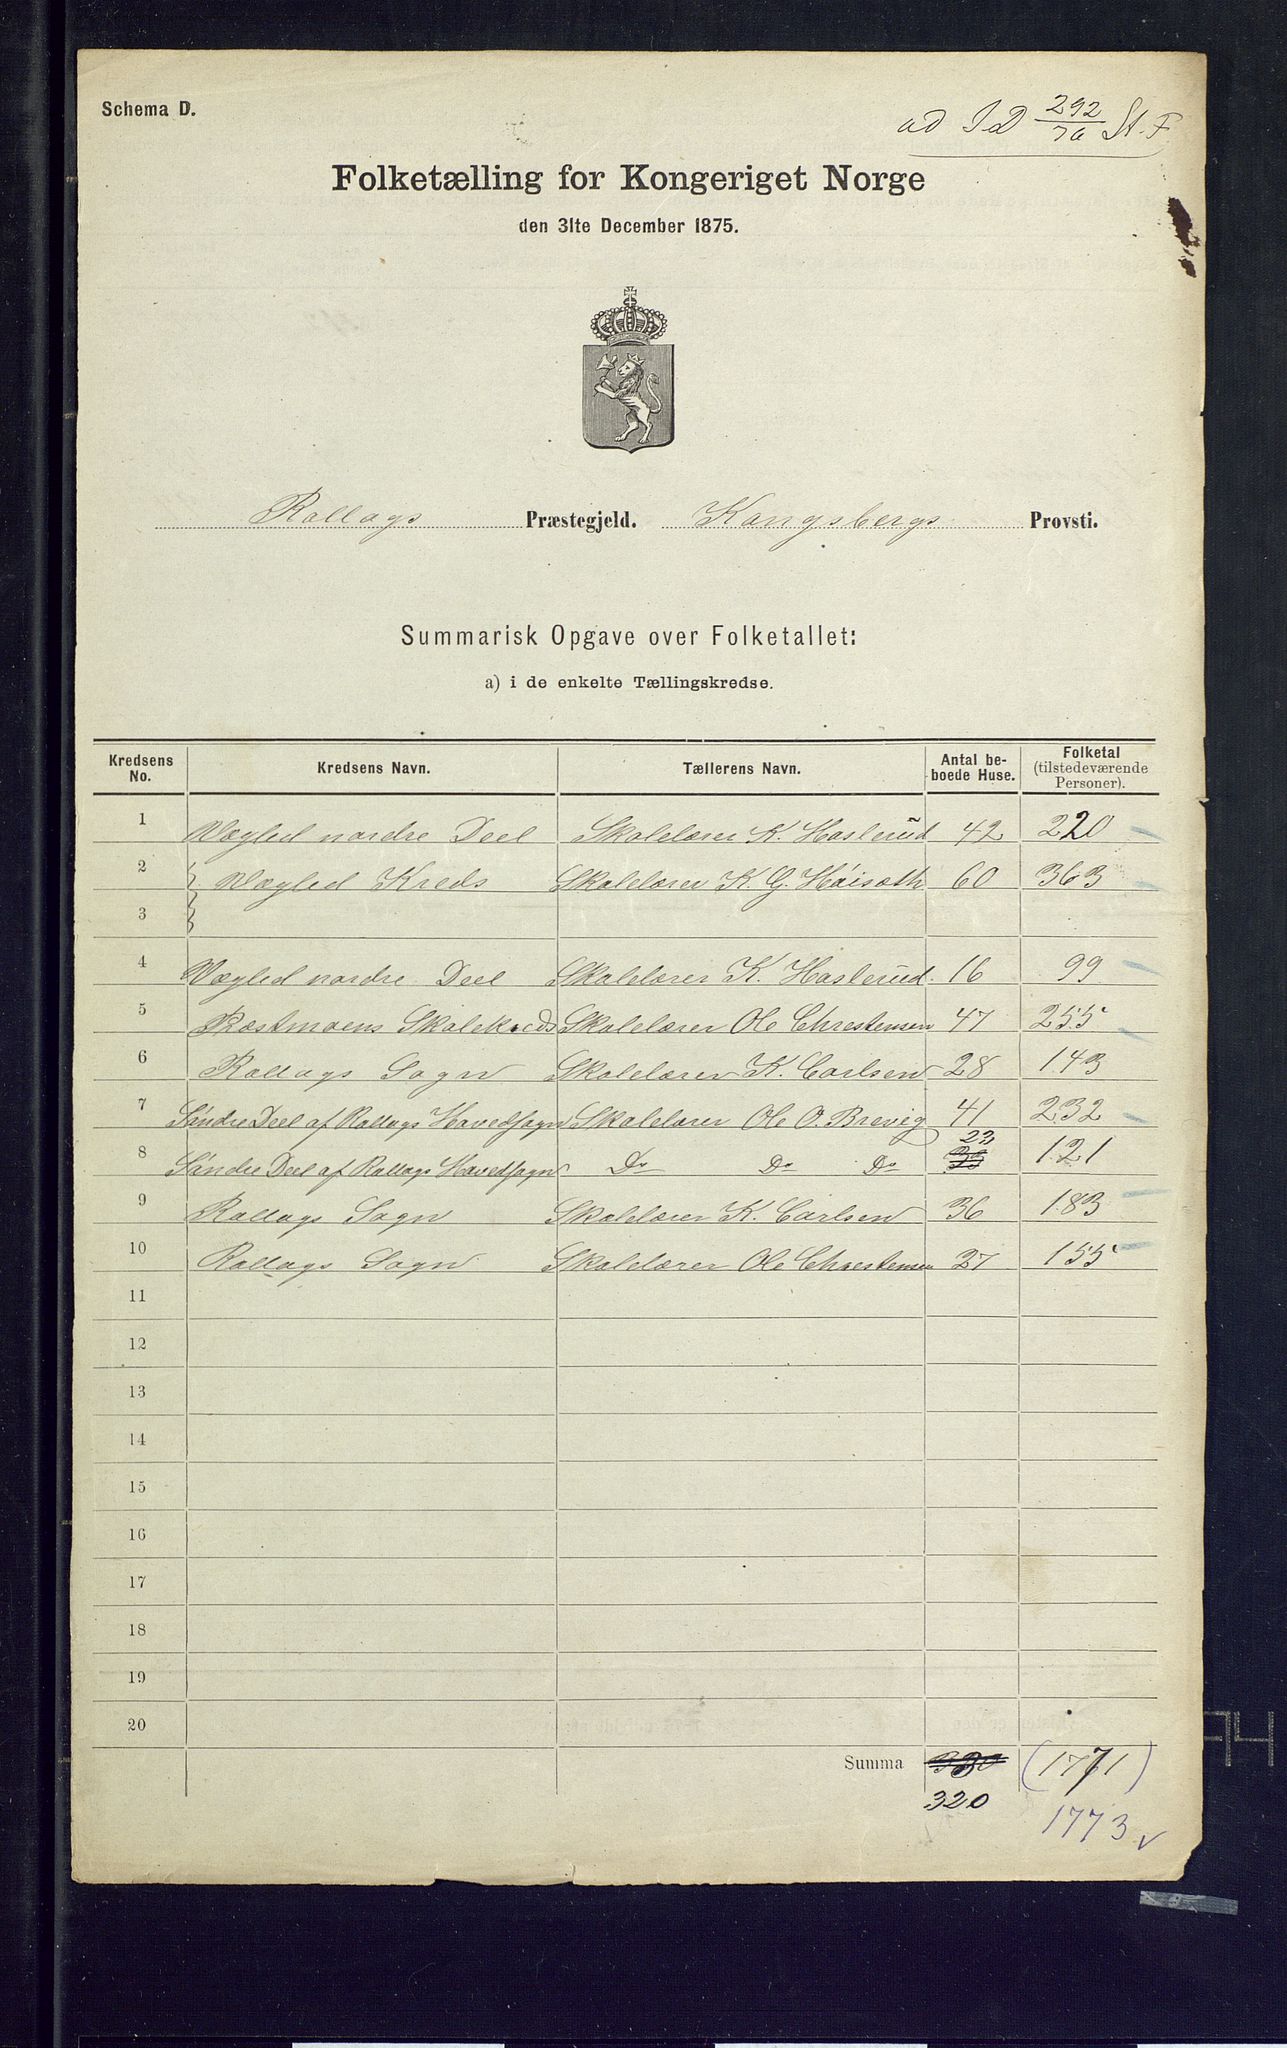 Schema D.
ad I D 292/76 St. F
Folketælling for Kongeriget Norge
den 31te December 1875.
Rollags Præstegjeld. Kongsbergs Provsti.
Summarisk Opgave over Folketallet:
a) i de enkelte Tællingskredse.
Kredsens No. Kredsens Navn. Tællerens Navn. Antal beboede Huse. Folketal (tilstedeværende Personer).
1 Vægled nordre Deel Skolelærer K. Haslerud 42 220
2 Vægled Kreds Skolelærer K. G. Höisæth 60 363
3
4 Vægled nordre Deel Skolelærer K. Haslerud 16 99
5 Præstmoens Skolekreds Skolelærer Ole Christensen 47 255
6 Rollags Sogn Skolelærer K. Carlsen 28 143
7 Söndre Deel af Rollags Hovedsogn Skolelærer Ole O. Brevig 41 232
8 Söndre Deel af Rollags Hovedsogn Do Do Do 33 23 121
9 Rollags Sogn Skolelærer K. Carlsen 36 183
10 Rollags Sogn Skolelærer Ole Christensen 27 155
11
12
13
14
15
16
17
18
19
20
Summa 330 (1771)
320 1773 v